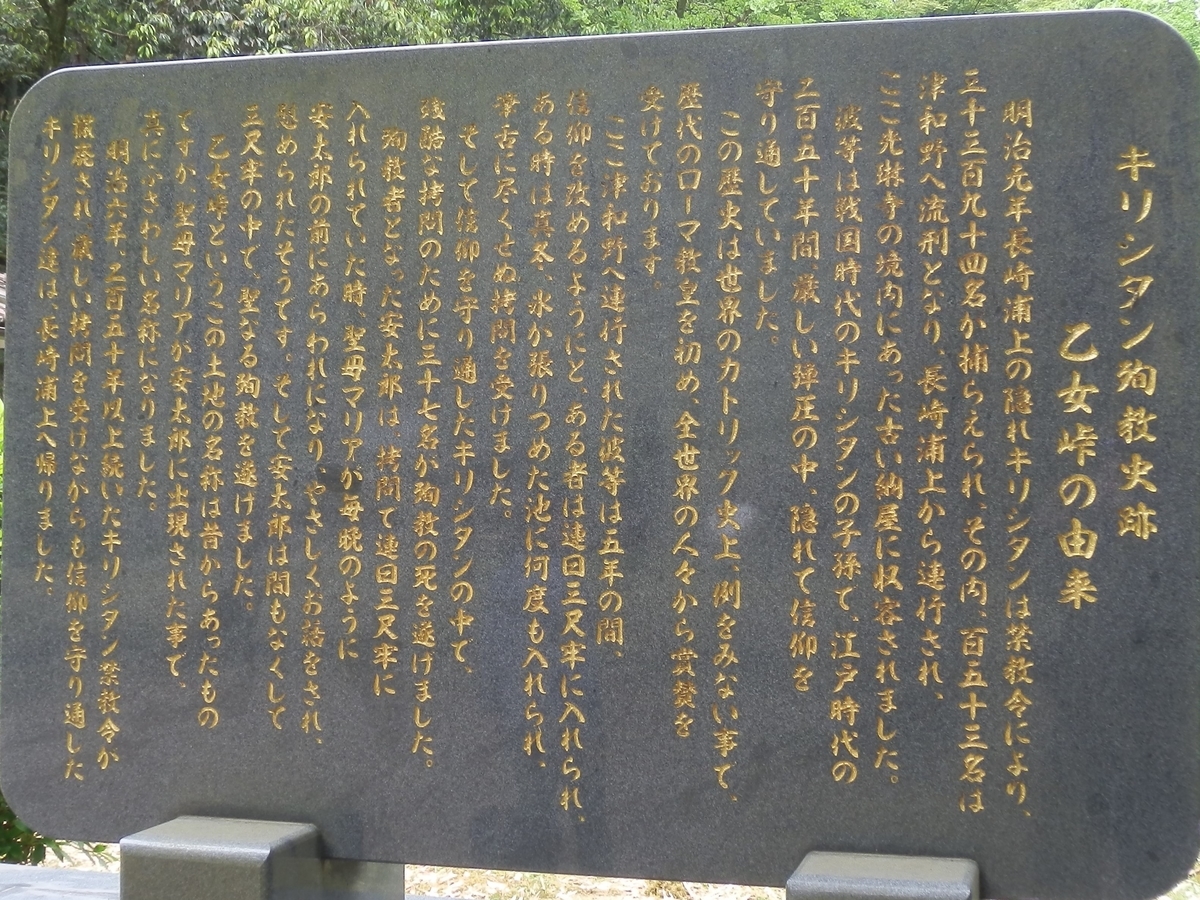 キリシタン殉教史跡
乙女峠の由来
明治元年長崎浦上の隠れキリシタンは禁教令により、
三千三百九十四名が捕らえられ、その内、百五十三名は
津和野へ流刑となり、長崎浦上から連行され、
ここ光琳寺の境内にあった古い納屋に収容されました。
彼等は戦国時代のキリシタンの子孫で、江戸時代の
二百五十年間、厳しい弾圧の中、隠れて信仰を
守り通していました。
この歴史は世界のカトリック史上、例をみない事で、
歴代のローマ教皇を初め、全世界の人々から賞賛を
受けております。
ここ津和野へ連行された彼等は五年の間、
信仰を改めるようにと、ある者は連日三尺牢に入れられ、
ある時は真冬、氷が張りつめた池に何度も入れられ、
筆舌に尽くせぬ拷問を受けました。
そして信仰を守り通したキリシタンの中で、
残酷な拷問のために三十七名が殉教の死を遂げました。
殉教者となった安太郎は、拷問で連日三尺牢に
入れられていた時、聖母マリアが母親のように
安太郎の前にあらわれになり、やさしくお話をされ、
慰められたそうです。そして安太郎は間もなくして
三尺牢の中で、聖なる殉教を遂げました。
乙女峠というこの土地の名称は昔からあったもの
ですが、聖母マリアが安太郎に出現された事で、
真にふさわしい名称になりました。
明治六年、二百五十年以上続いたキリシタン禁教令が
撤廃され、厳しい拷問を受けながらも信仰を守り通した
キリシタン達は、長崎浦上へ帰りました。